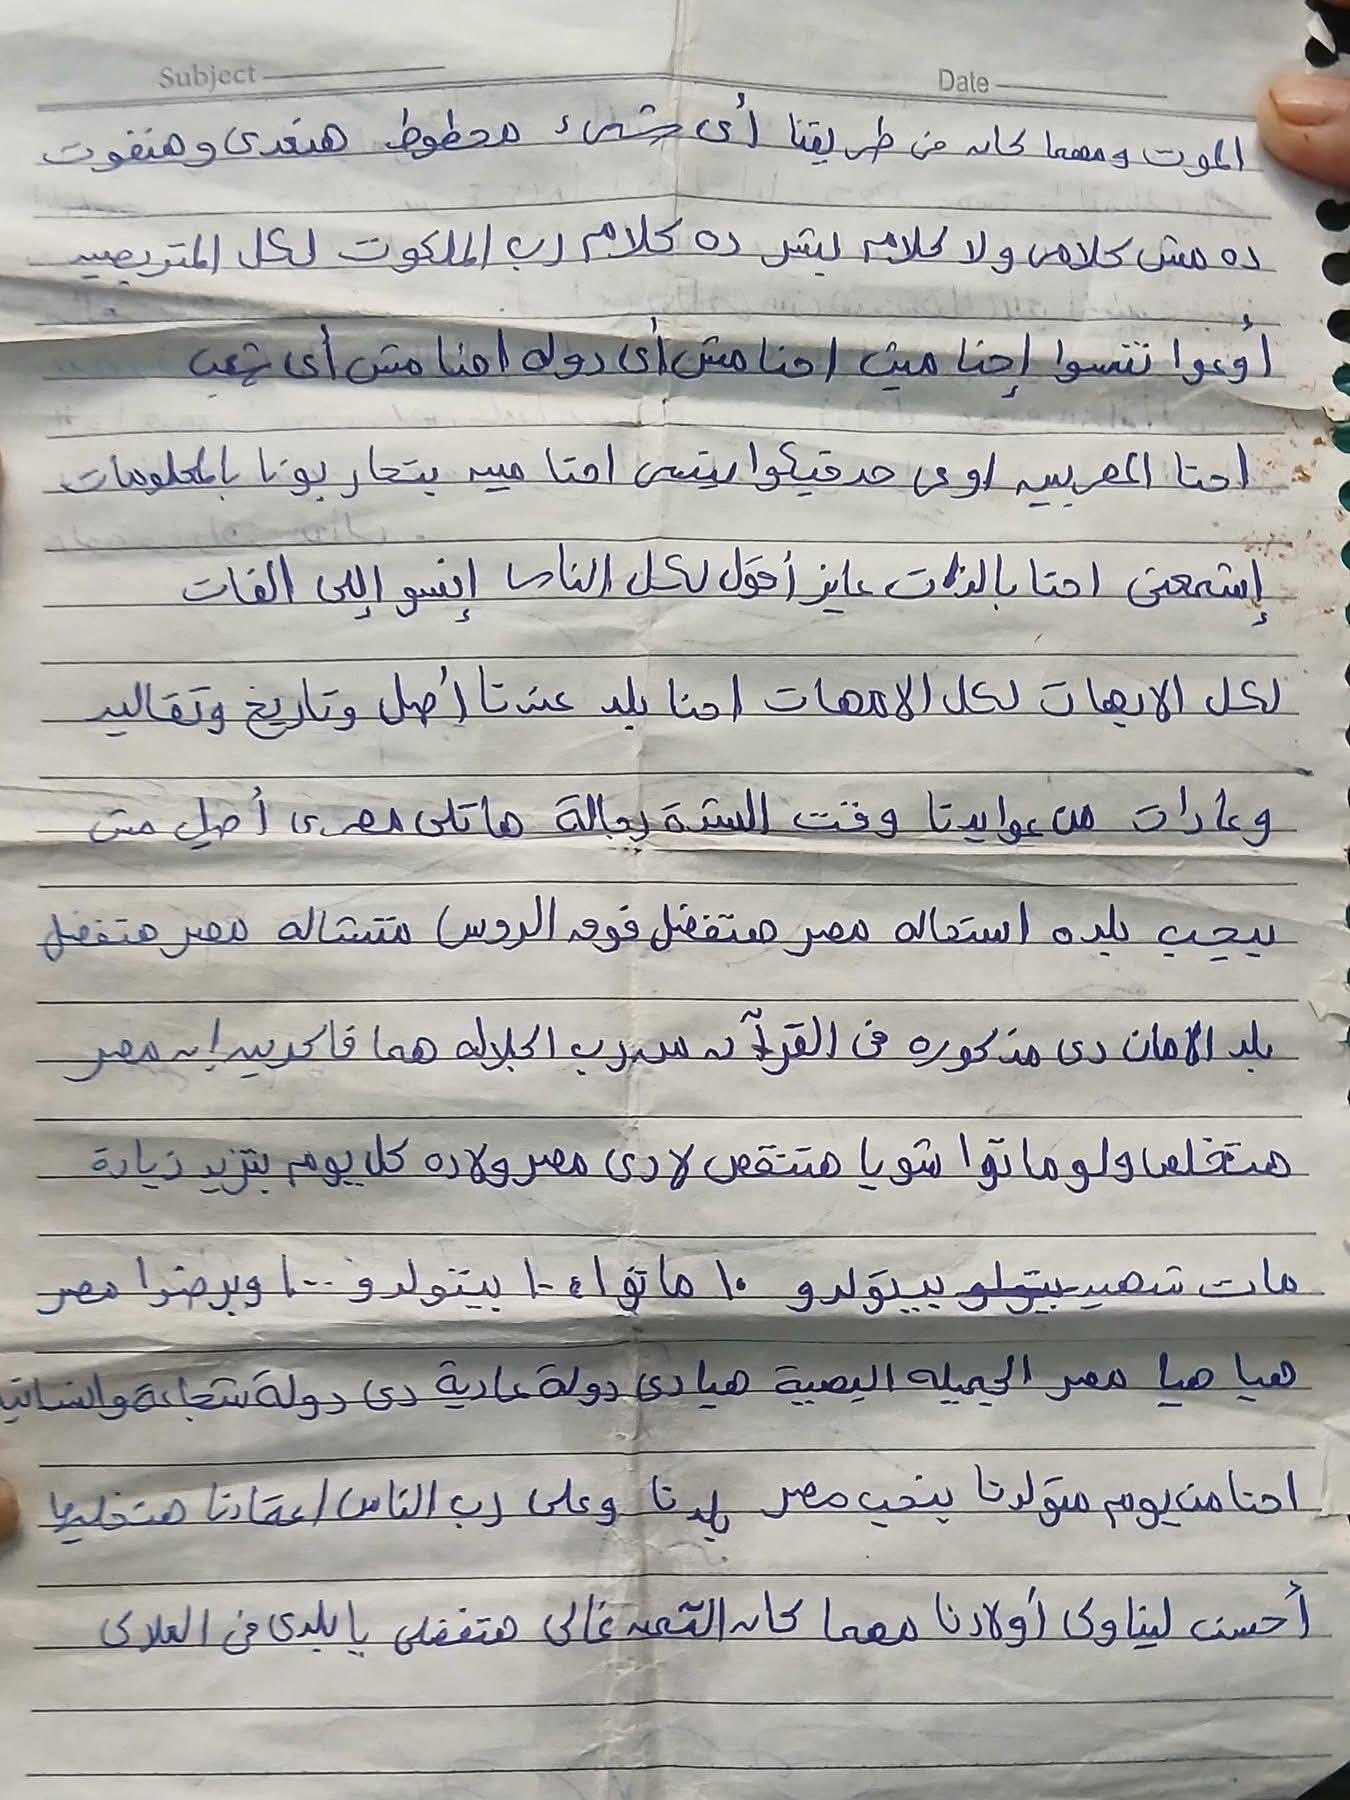 Subject
Date
الموت ومهما كان فى طريقنا أى شىء محطوط هنعدى وهنفوت
ده مش كلامى ولا كلام بشر ده كلام رب الملكوت لكل المتربصين
أوعوا تنسوا إحنا مين احنا مش أى دوله احنا مش أى شعب
احنا المصريين اوعى حد فيكوا ينسى احنا مين بتحاربونا بالمعلومات
إشمعنى احنا بالذات عايز أقول لكل الناس إنسو اللى الفات
لكل الابهات لكل الامهات احنا بلد عندنا أصل وتاريخ وتقاليد
وعادات من عوايدنا وقت الشدة رجالة هاتلى مصرى أصلى مش
بيحب بلده استحاله مصر هتفضل فوق الروس متنشاله مصر هتفضل
بلد الامان دى مذكوره فى القرآن من رب الجلاله هما فاكرين إن مصر
هتخلص ولو ماتوا شويا هتنقص لا دى مصر ولاده كل يوم بتزيد زيادة
مات شهيد بيتولدو ١٠ ماتوا ١٠ بيتولدو ١٠٠ وبرضوا مصر
هيا هيا مصر الجميله الابية هيا دى دولة عادية دى دولة شجاعة وانسانية
احنا من يوم متولدنا بنحب مصر بلدنا وعلى رب الناس اعتمادنا هتخليها
أحسن لينا ولى أولادنا مهما كان التمن غالى هتفضلى يا بلدى فى العلالى